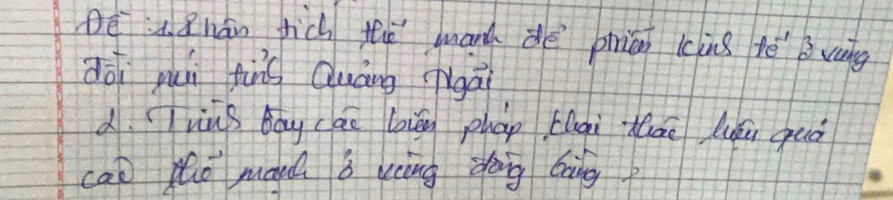 Đề : 1. Phân tích thế mạnh để phiển kinh tế ở vùng
đồi núi tỉnh Quảng Ngãi
2. Trình bày các biện pháp khai thác hiệu quả
các thế mạnh ở vùng đồng bằng ?